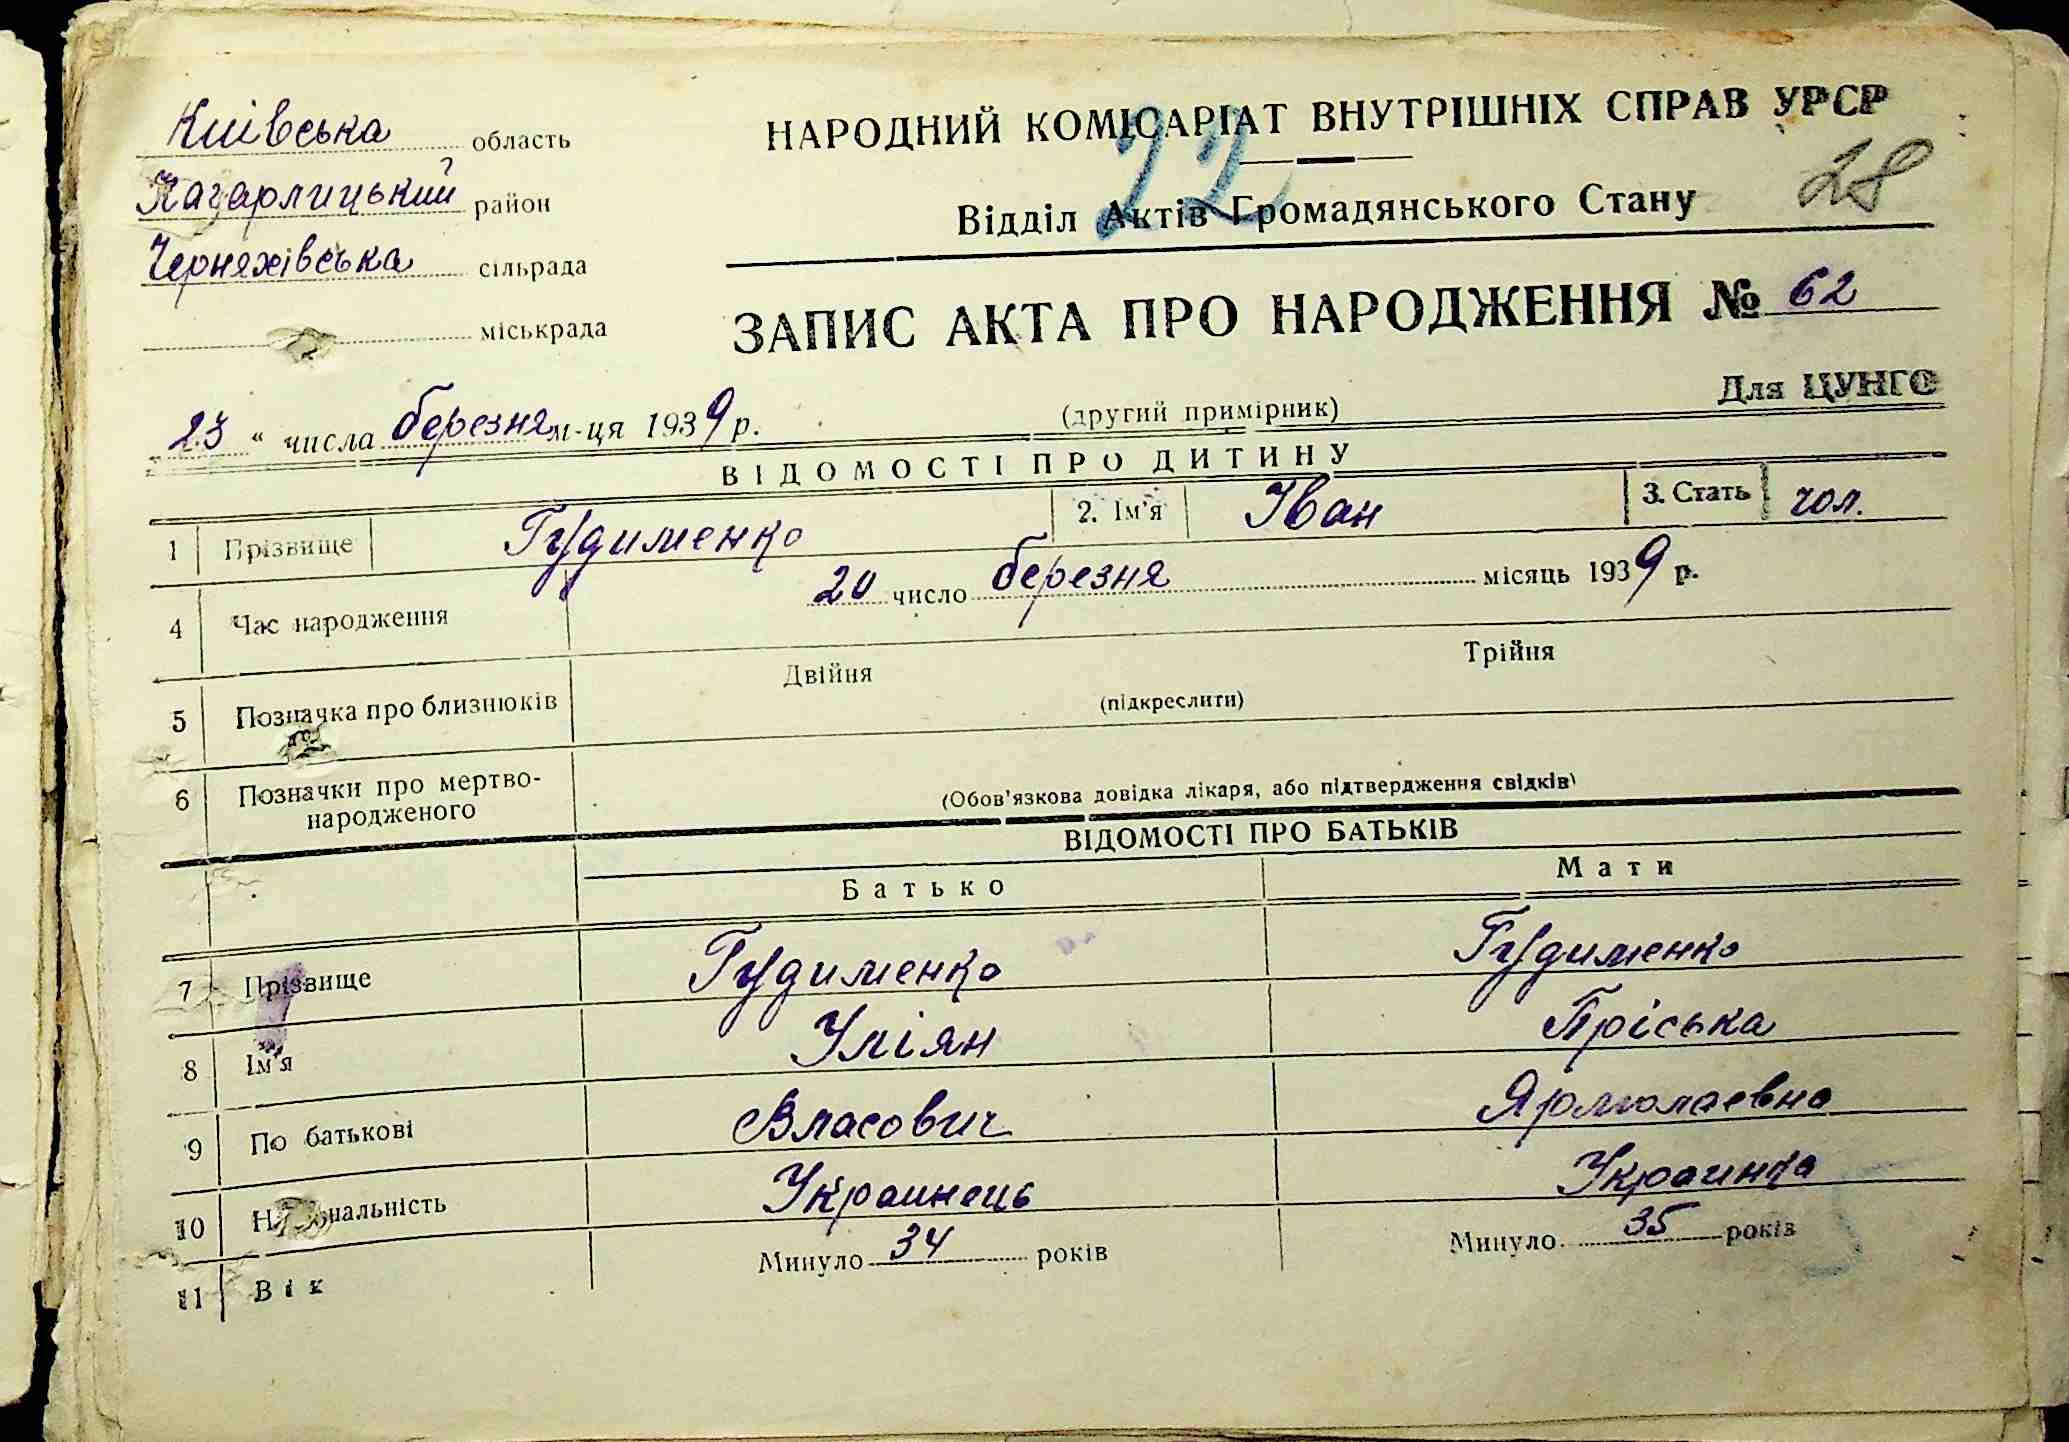 Київська область
Кагарлицький район
Черняхівська сільрада
міськрада
НАРОДНИЙ КОМІСАРІАТ ВНУТРІШНІХ СПРАВ УРСР
22
28
Відділ Актів Громадянського Стану
ЗАПИС АКТА ПРО НАРОДЖЕННЯ № 62
„23“ числа березня м-ця 1939 р.
(другий примірник)
Для ЦУНГО
ВІДОМОСТІ ПРО ДИТИНУ
1 Прізвище Гудименко 2. Ім'я Іван 3. Стать чол.
4 Час народження 20 число березня місяць 1939 р.
5 Позначка про близнюків Двійня Трійня
(підкреслити)
6 Позначки про мертво-
народженого
(Обов'язкова довідка лікаря, або підтвердження свідків)
ВІДОМОСТІ ПРО БАТЬКІВ
Батько Мати
7 Прізвище Гудименко Гудименко
8 Ім'я Уліян Пріська
9 По батькові Власович Ярмолаевна
10 Національність Украинець Украинка
11 Вік Минуло 34 років Минуло 35 років